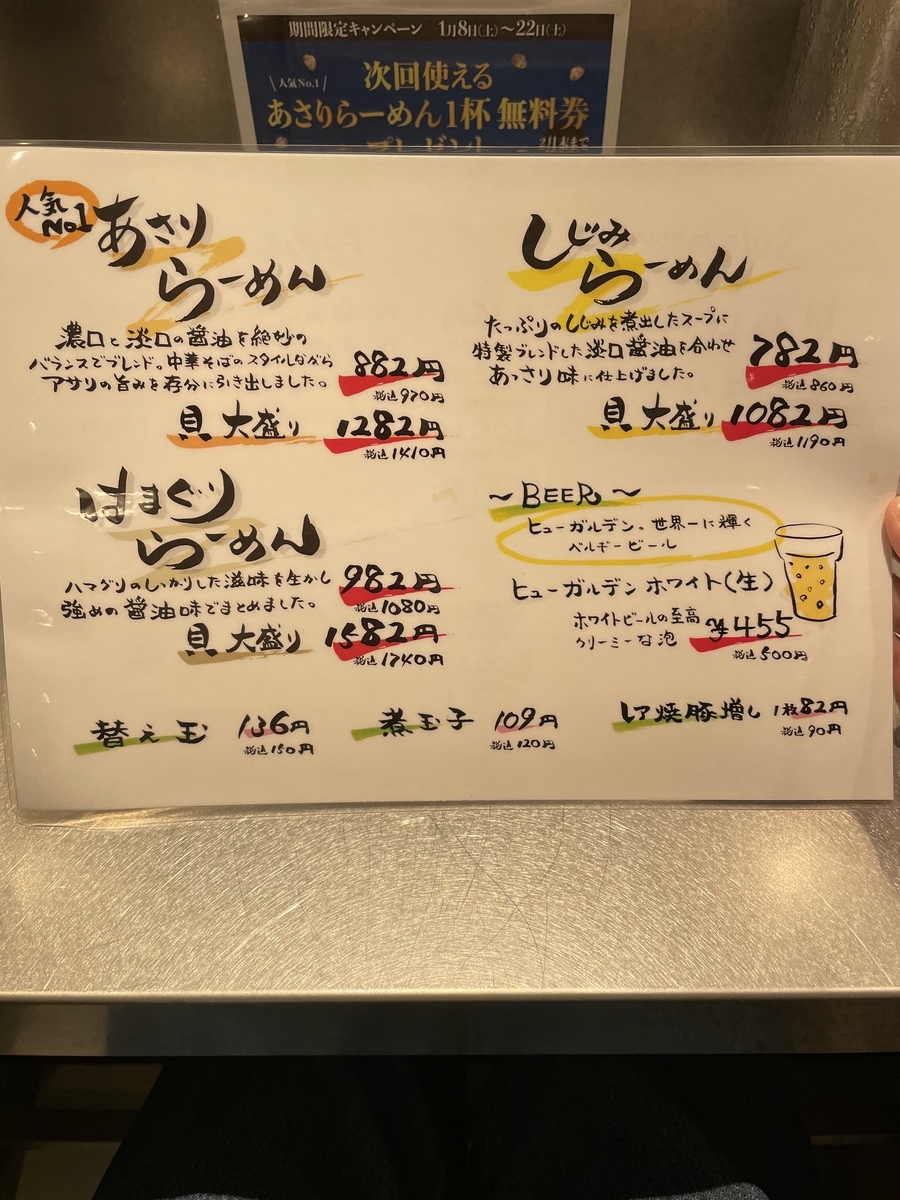 期間限定キャンペーン 1月8日(土)～22日(土)
人気No.1
次回使える
あさりらーめん1杯 無料券
人気No1
あさり
らーめん
濃口と淡口の醤油を絶妙の
バランスでブレンド。中華そばのスタイルながら
アサリの旨みを存分に引き出しました。
882円
税込970円
貝 大盛り 1282円
税込1410円
はまぐり
らーめん
ハマグリのしっかりした滋味を生かし
強めの醤油味でまとめました。
982円
税込1080円
貝 大盛り 1582円
税込1740円
しじみ
らーめん
たっぷりのしじみを煮出したスープに
特製ブレンドした淡口醤油を合わせ
あっさり味に仕上げました。
782円
税込860円
貝 大盛り 1082円
税込1190円
～BEER～
ヒューガルデン。世界一に輝く
ベルギービール
ヒューガルデン ホワイト(生)
ホワイトビールの至高
クリーミーな泡
¥455
税込500円
替え玉 136円
税込150円
煮玉子 109円
税込120円
レア焼豚増し 1枚82円
税込90円